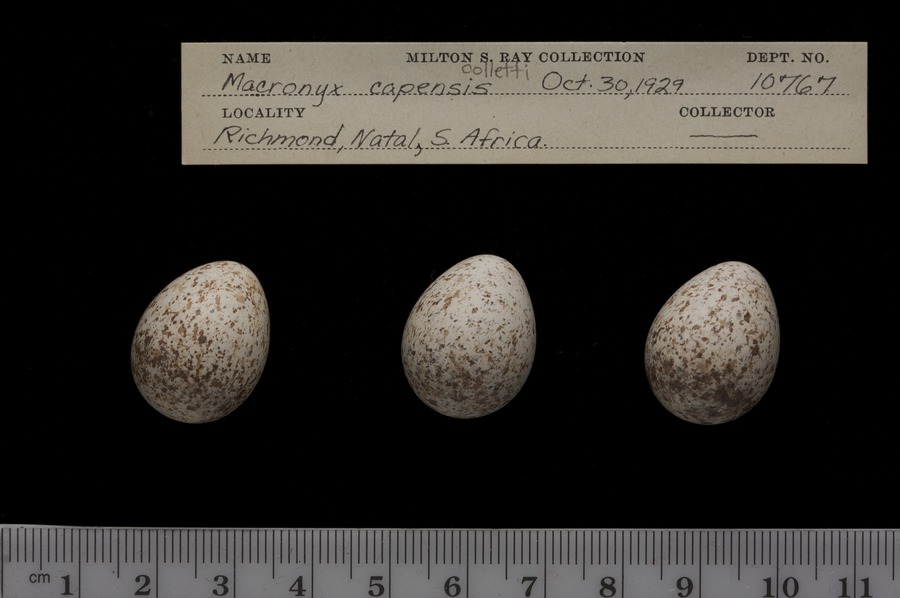 NAME MILTON S. RAY COLLECTION DEPT. NO.
colletti
Macronyx capensis Oct. 30, 1929 10767
LOCALITY COLLECTOR
Richmond, Natal, S. Africa.
cm 1 2 3 4 5 6 7 8 9 10 11